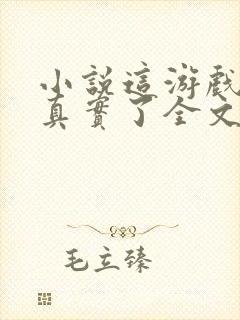 小說這游戲
真實了全文
毛立臻